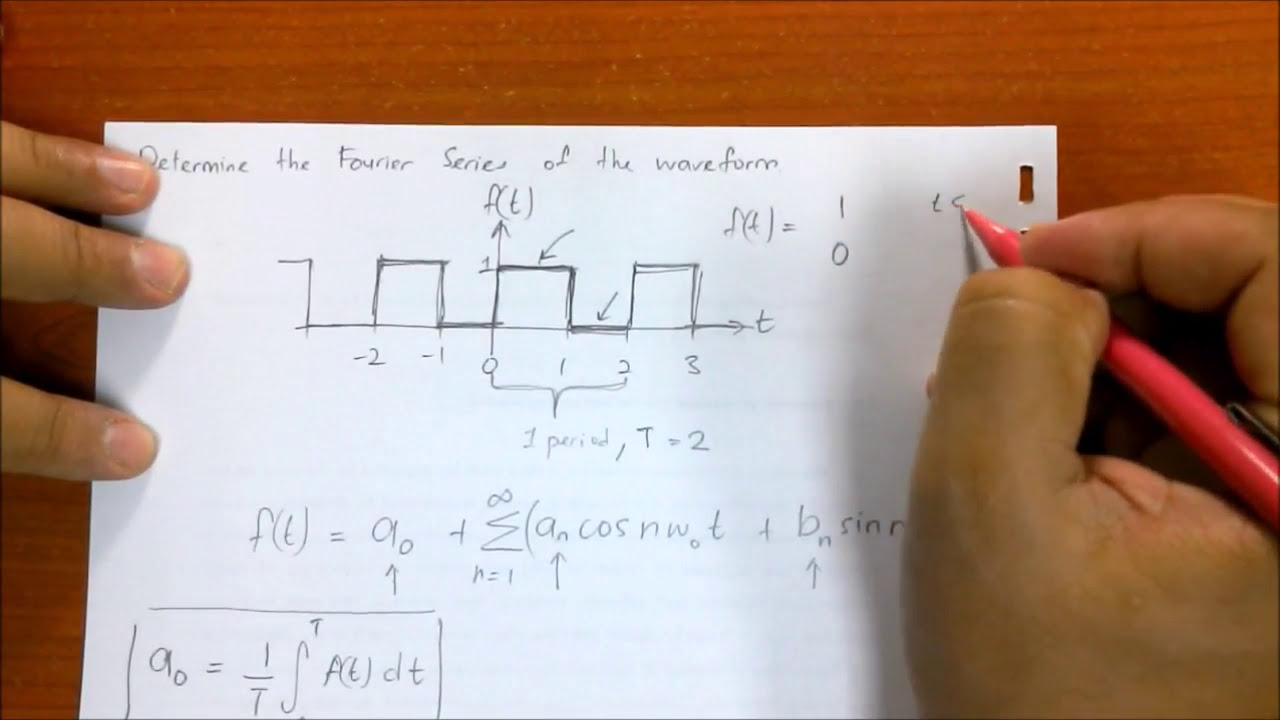 Determine the Fourier Series of the waveform.
f(t)
f(t) = 1 t <
0
1
t
-2 -1 0 1 2 3
1 period, T = 2
f(t) = a₀ + ∑ₙ₌₁^∞ (aₙ cos nω₀t + bₙ sin n
a₀ = 1/T ∫^T f(t) dt